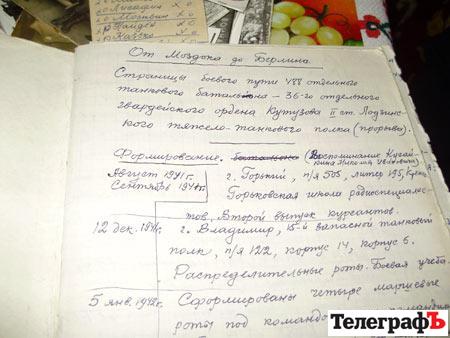 Лисафин х о
Москвин х о
Гайдей х о
От Моздока до Берлина
Страницы боевого пути 488 отдельного
танкового батальона – 36-го отдельного
гвардейского ордена Кутузова II ст. Лодзин-
ского тяжело-танкового полка (прорыва).
Формирование. батальона (Воспоминание
Николая
Август 1941 г. г. Горький, п/я 505, литер 195,
Сентябрь 1941 г. Горьковская школа радиоспециалис-
тов. Второй выпуск курсантов.
12 дек. 1941 г. г. Владимир, 15-й запасной танковый
полк, п/я 12/2, корпус 14, корпус 6.
Распределительные роты. Боевая учеба.
5 янв. 1942 г. Сформированы четыре маршевые
роты под командо
ТелеграфЪ